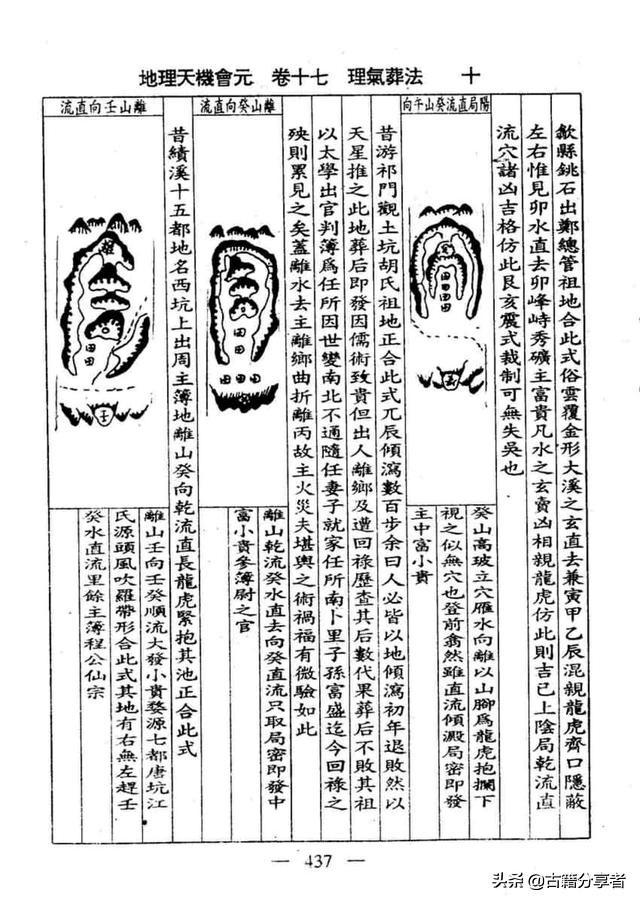 地理天機會元 卷十七 理氣葬法 十
歙縣銚石出鄭總管祖地合此式俗雲覆金形大溪之玄直去兼寅甲乙辰混親龍虎齊口隱蔽
左右惟見卯水直去卯峰峙秀礦主富貴凡水之玄賣凶相親龍虎仿此則吉已上陰局乾流直
流穴諸凶吉格仿此艮亥震式裁制可無失吳也
陽局直流癸山午向
癸山高玻立穴雁水向離以山腳爲龍虎抱攔下
視之似無穴也登前翕然雖直流傾瀉局密即發
主中富小貴
昔游祁門觀土坑胡氏祖地正合此式兀辰傾瀉數百步余曰人必皆以地傾瀉初年退敗然以
天星推之此地葬后即發因儒術致貴但出人離鄉及遭回祿歷查其后數代果葬后不敗其祖
以太學出官判簿爲任所因世變南北不通隨任妻子就家任所南卜里子孫富盛迄今回祿之
殃則累見之矣蓋離水去主離鄉曲折離丙故主火災夫堪輿之術禍福有微驗如此
離山癸向直流
離山乾流癸水直去向癸直流只取局密即發中
富小貴參簿尉之官
昔績溪十五都地名西坑上出周主簿地離山癸向乾流直長龍虎緊抱其池正合此式
離山壬向直流
離山壬向壬癸順流大發小貴婺源七都唐坑江
氏源頭風吹羅帶形合此式其地有右無左趕壬
癸水直流里餘主薄程公仙宗
田
田
田
壬
— 437 —
头条 @古籍分享者